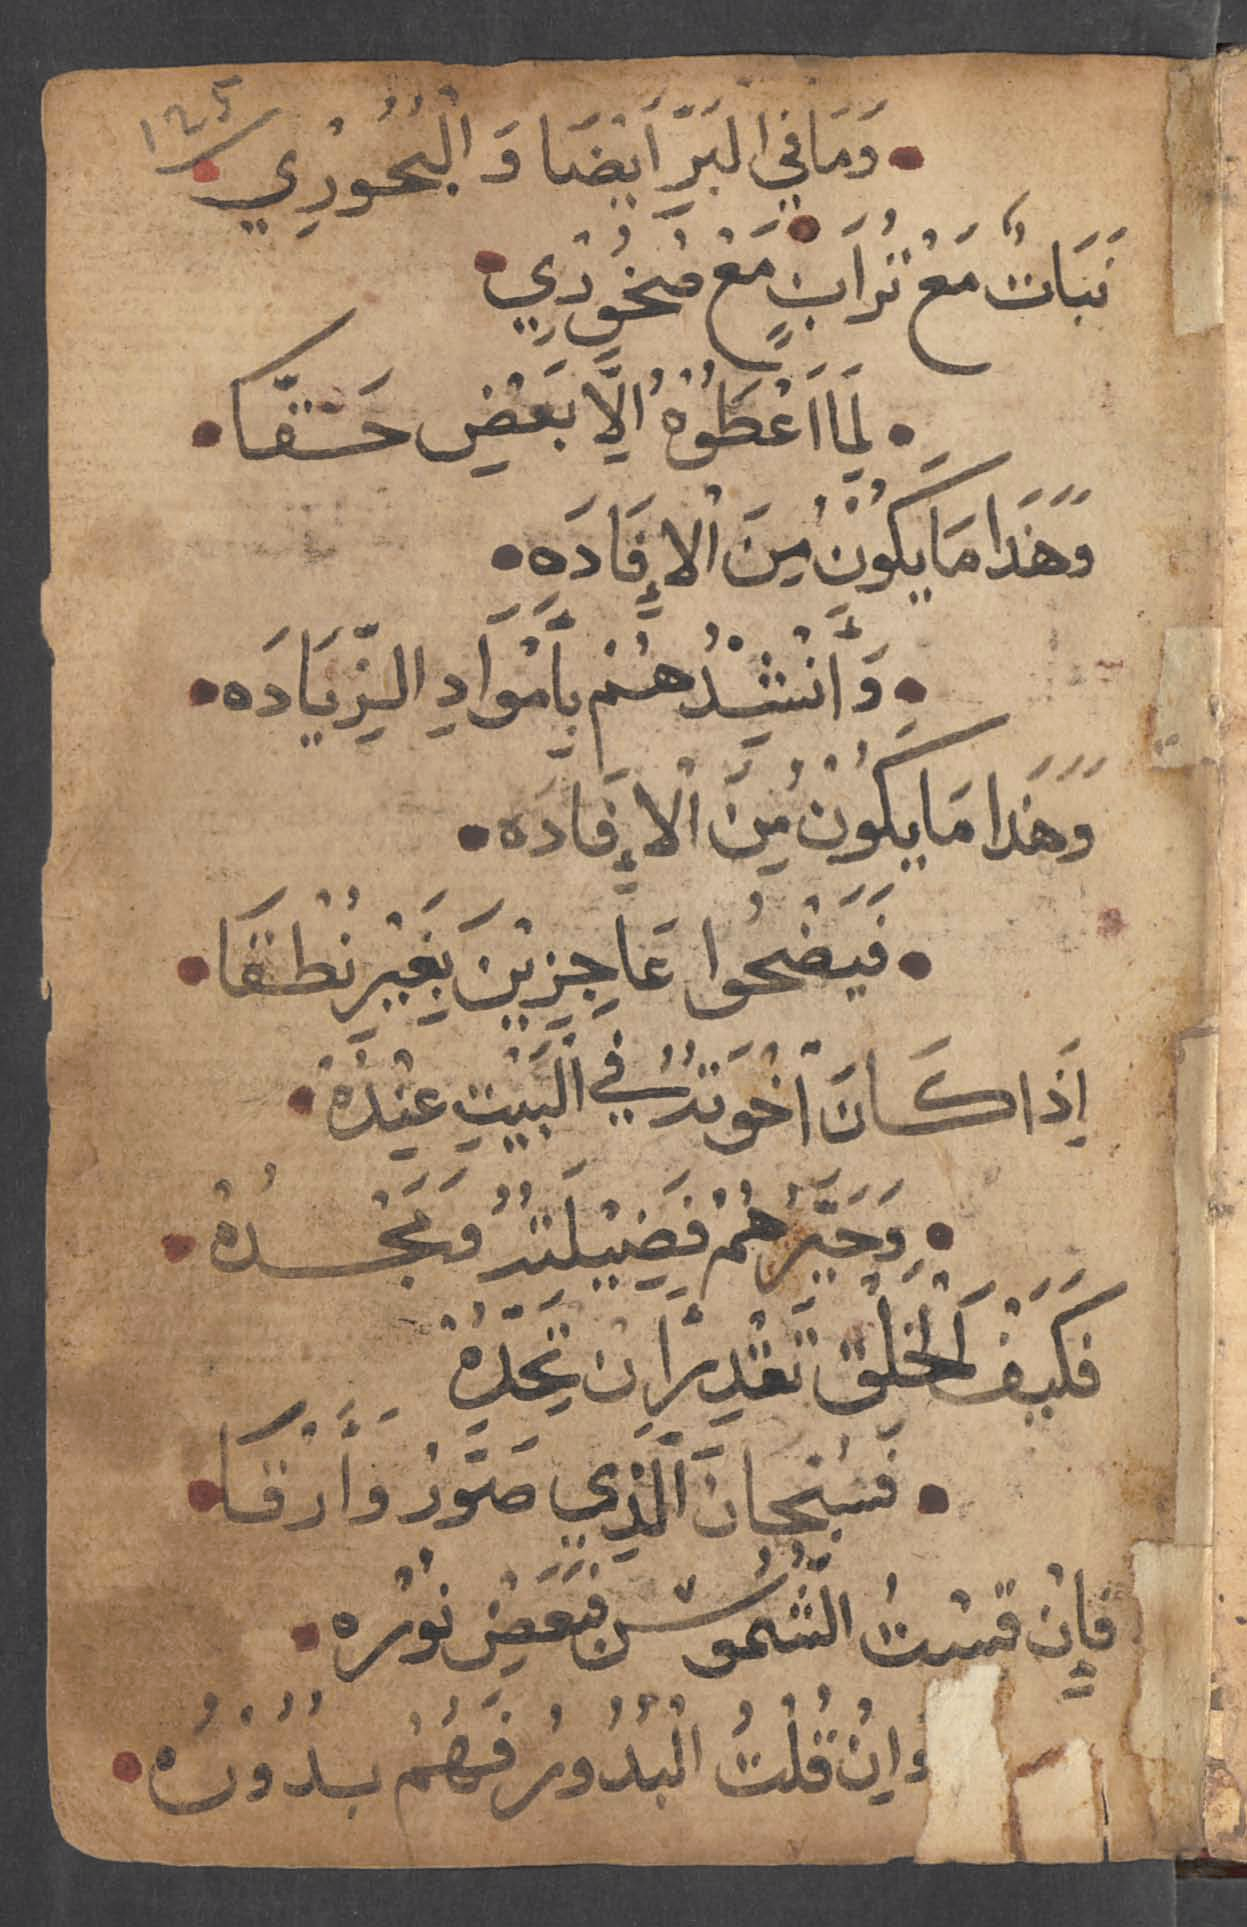 ١٢٥
وَمَا فِي الْبَرِّ أَيْضًا وَ الْبُحُوْرِي
نَبَاتٌ مَعْ تُرَابٍ مَعْ صُخُوْرِي
لِمَا اَعْطَوْهُ اِلَّا بَعْضِ حَقَّا
وَهَذَا مَا يَكُوْنُ مِنَ الْاِفَادَه
وَأَنْشِدُهُمْ بِأَمْوَادِ الزِّيَادَه
وَهَذَا مَا يَكُوْنُ مِنَ الْاِفَادَه
فَيَضْحُوا عَاجِزِيْنَ بِغَيْرِ نُطْقَا
اِذَا كَانَ اخْوَتُهُ فِي الْبَيْتِ عِنْدَهْ
وَحَيَّرَهُمْ فَضِيْلَتُهُ وَمَجْدُهْ
فَكَيْفَ الْخَلْقُ تَقْدِرُ اَنْ تَحُدُّهْ
فَسُبْحَانَ الَّذِي صَوَّرْ وَأَرْقَا
فَاِنْ قِسْتُ الشُّمُوْسْ فَبَعْضِ نُوْرُه
وَاِنْ قُلْتُ الْبُدُوْرُ فَهُمْ بِدُوْنُه